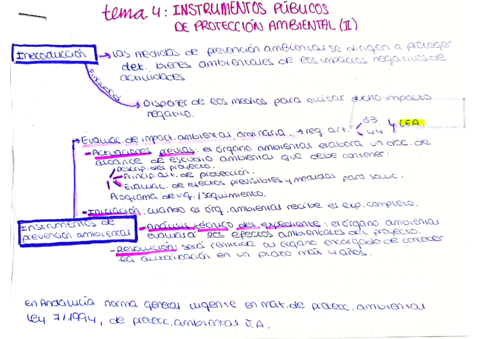 tema 4: INSTRUMENTOS PÚBLICOS
DE PROTECCIÓN AMBIENTAL (II)
Introducción
Las medidas de prevención ambiental se dirigen a proteger
det. bienes ambientales de los impactos negativos de
actividades
Disponer de los medios para evitar dicho impacto
negativo.
Evaluac. de impact. ambiental ordinaria. → reg. art. 33
44
LEA
- Actuaciones previas: el órgano ambiental elabora un doc. de
alcance de estudio ambiental que debe contener:
Descrip. del proyecto.
Princip. alt. de protección.
Evaluac. de efectos previsibles y medidas para soluc.
Programa de vig./seguimiento.
- Iniciación: cuando el órg. ambiental recibe el exp. completo.
Instrumentos de
prevención ambiental
- Análisis técnico del expediente: el órgano ambiental
evaluará los efectos ambientales del proyecto.
- Resolución: será remitida al órgano encargado de conceder
la autorización en un plazo máx 4 años.
En Andalucía norma general vigente en mat. de protecc. ambiental
Ley 7/1994, de protecc. ambiental J.A.